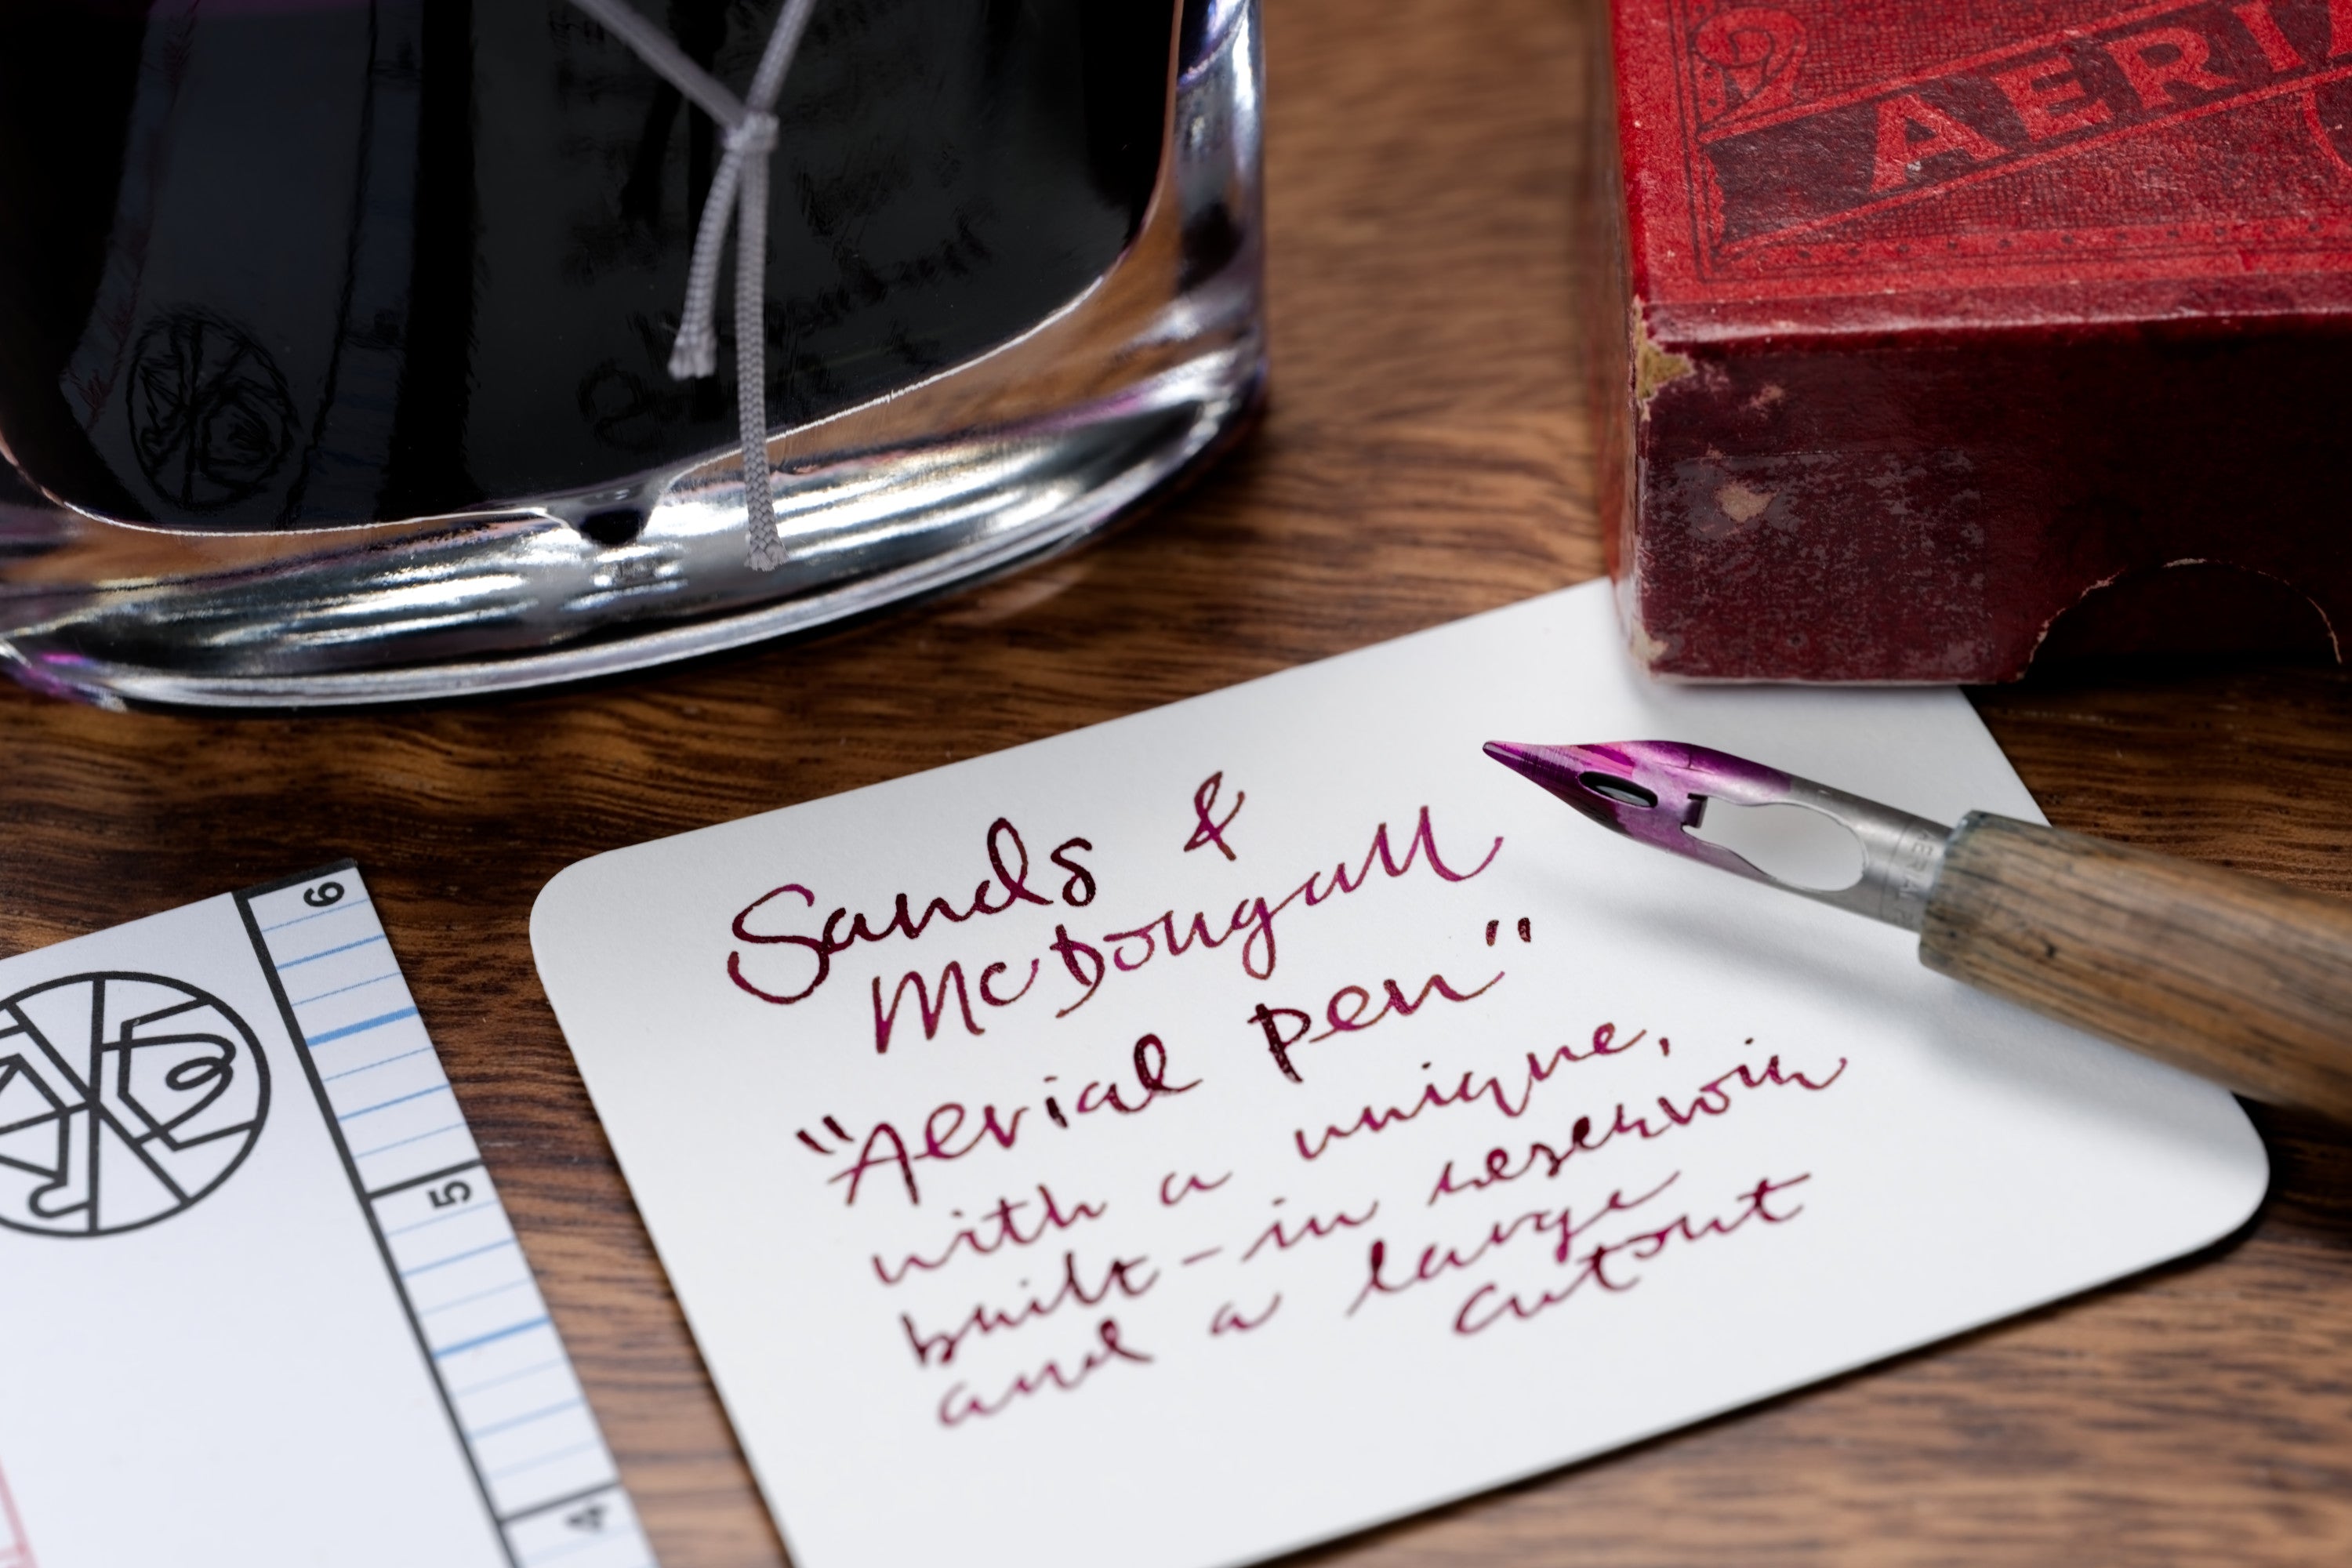 AERI
Sands &
McDougall
"Aerial Pen"
with a unique,
built-in reservoir
and a large
cutout
6
5
4